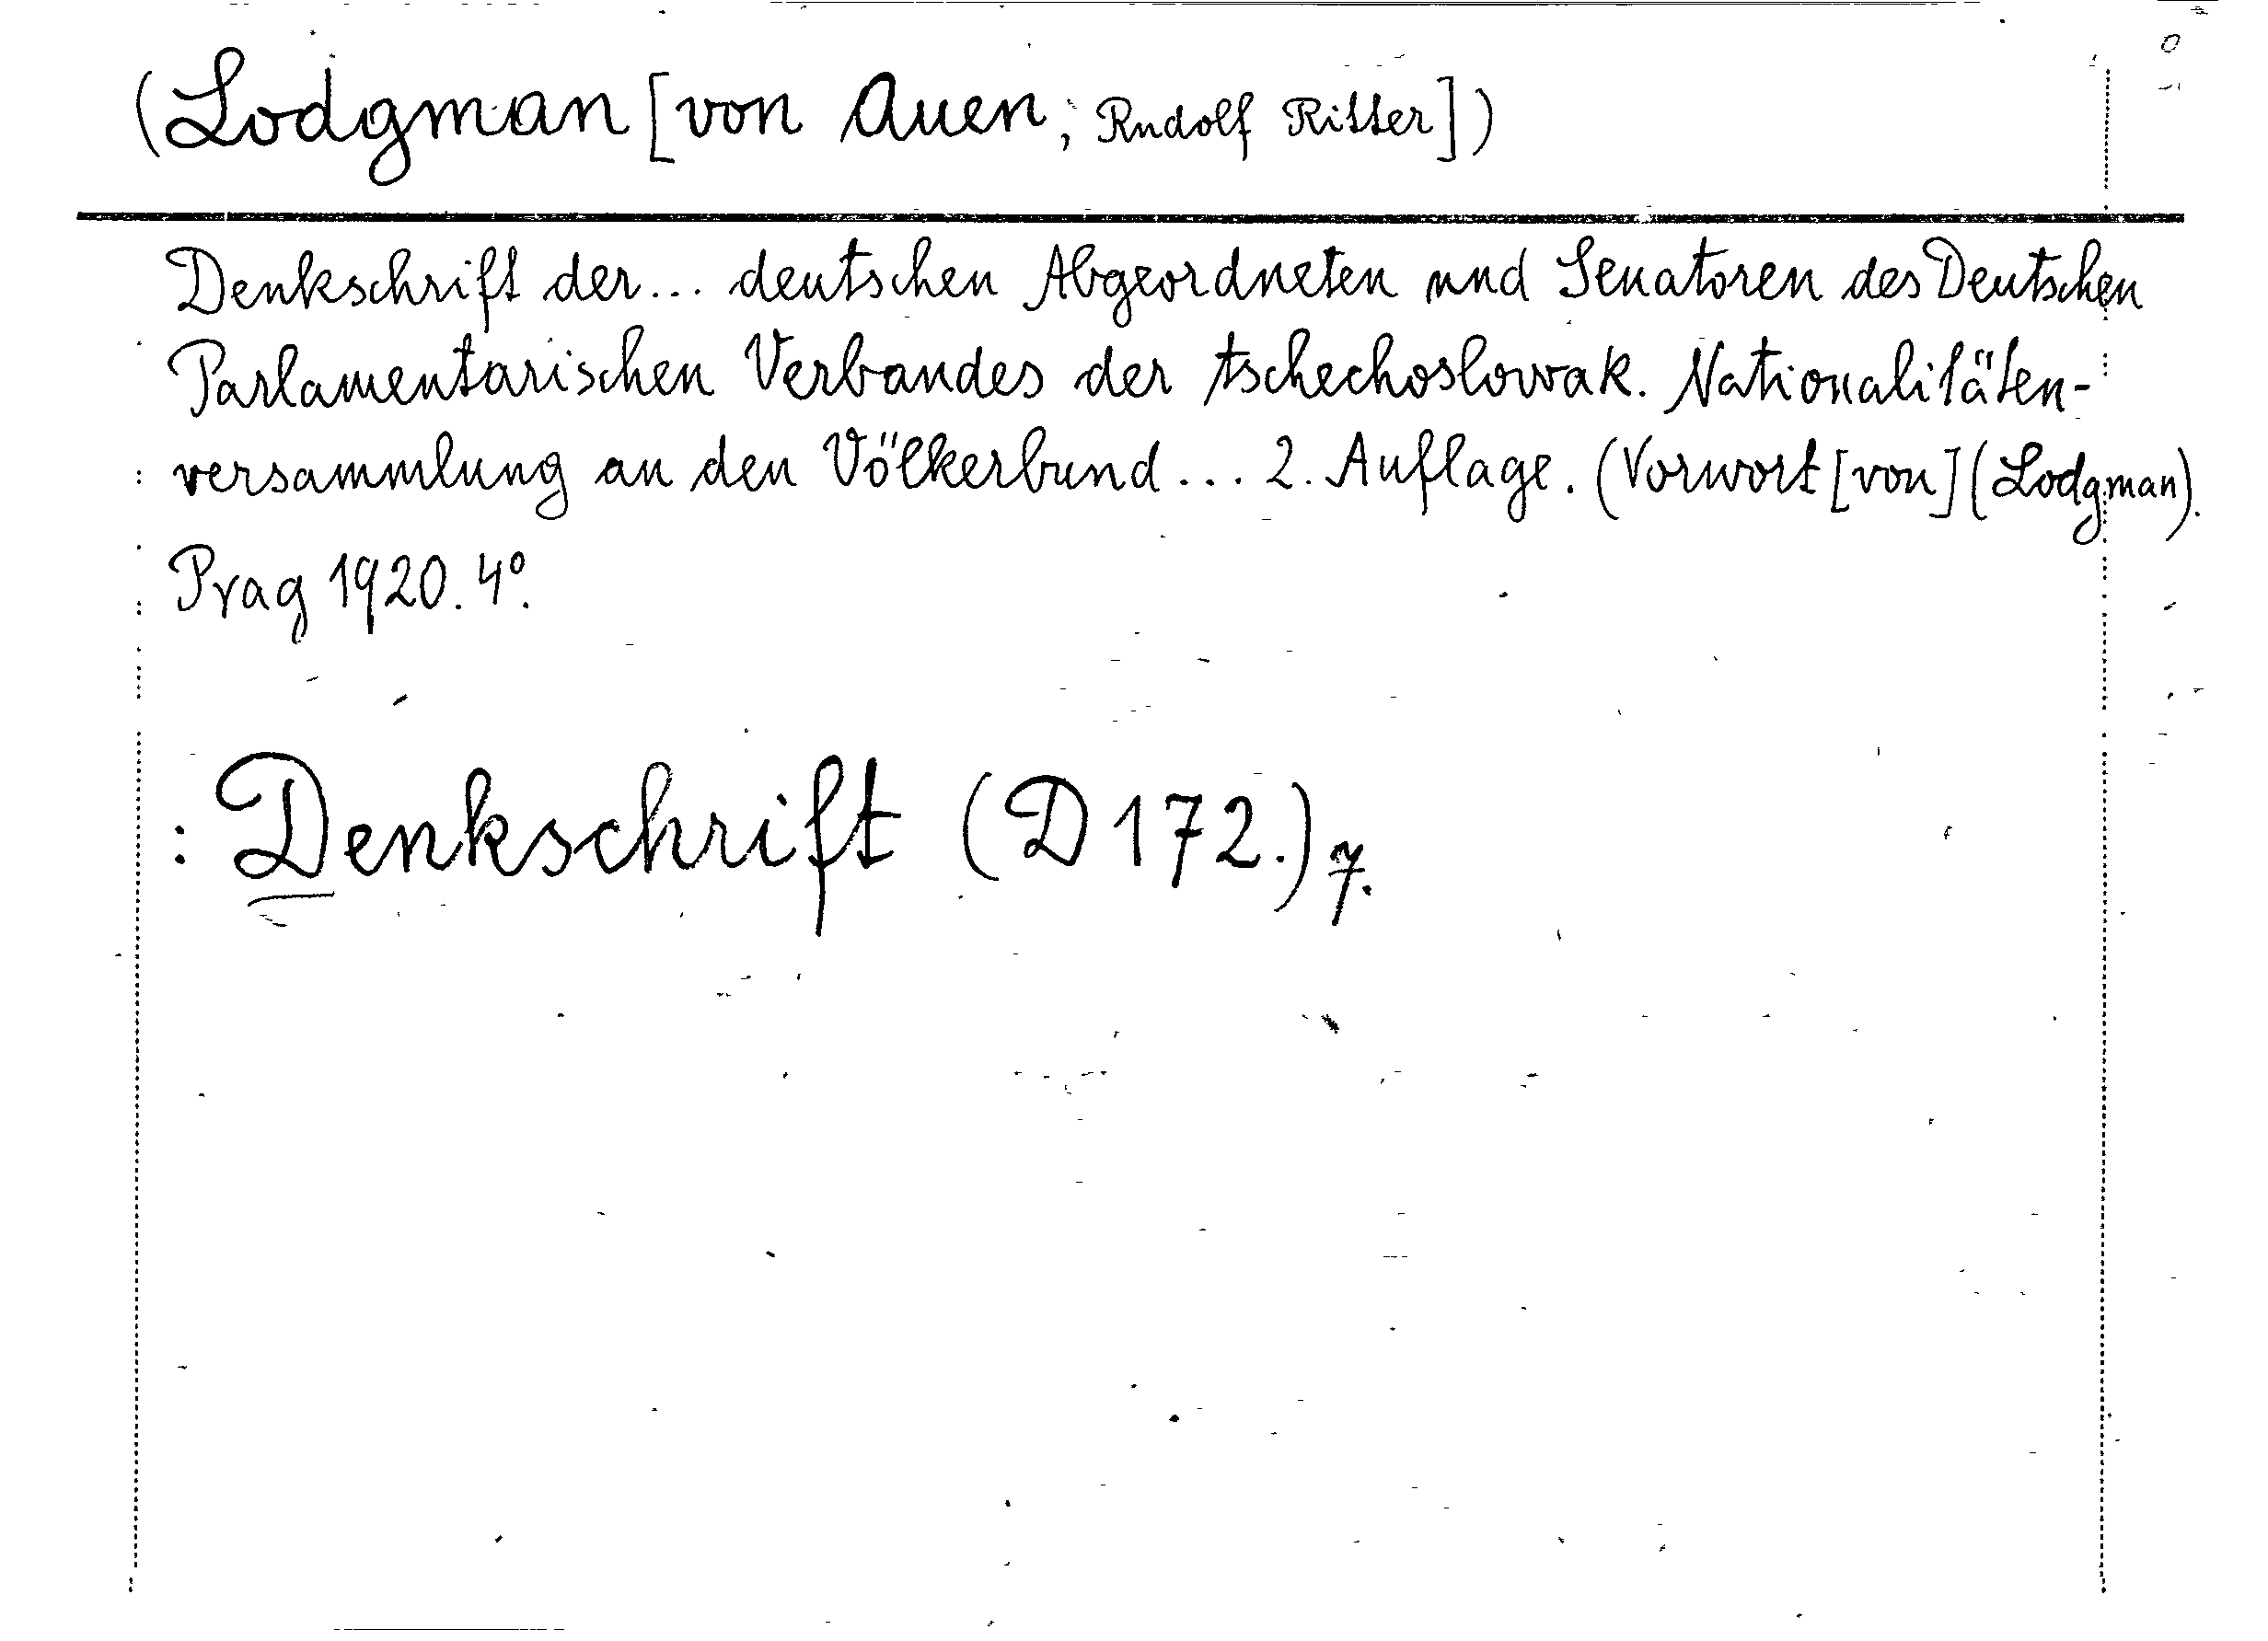 (Lodgman [von Auen; Rudolf Ritter])
Denkschrift der... deutschen Abgeordneten und Senatoren des Deutschen
Parlamentarischen Verbandes der tschechoslowak. Nationalitäten-
versammlung an den Völkerbund... 2. Auflage. (Vorwort [von] (Lodgman).
Prag 1920. 4°.
: Denkschrift (D 172.) 7.